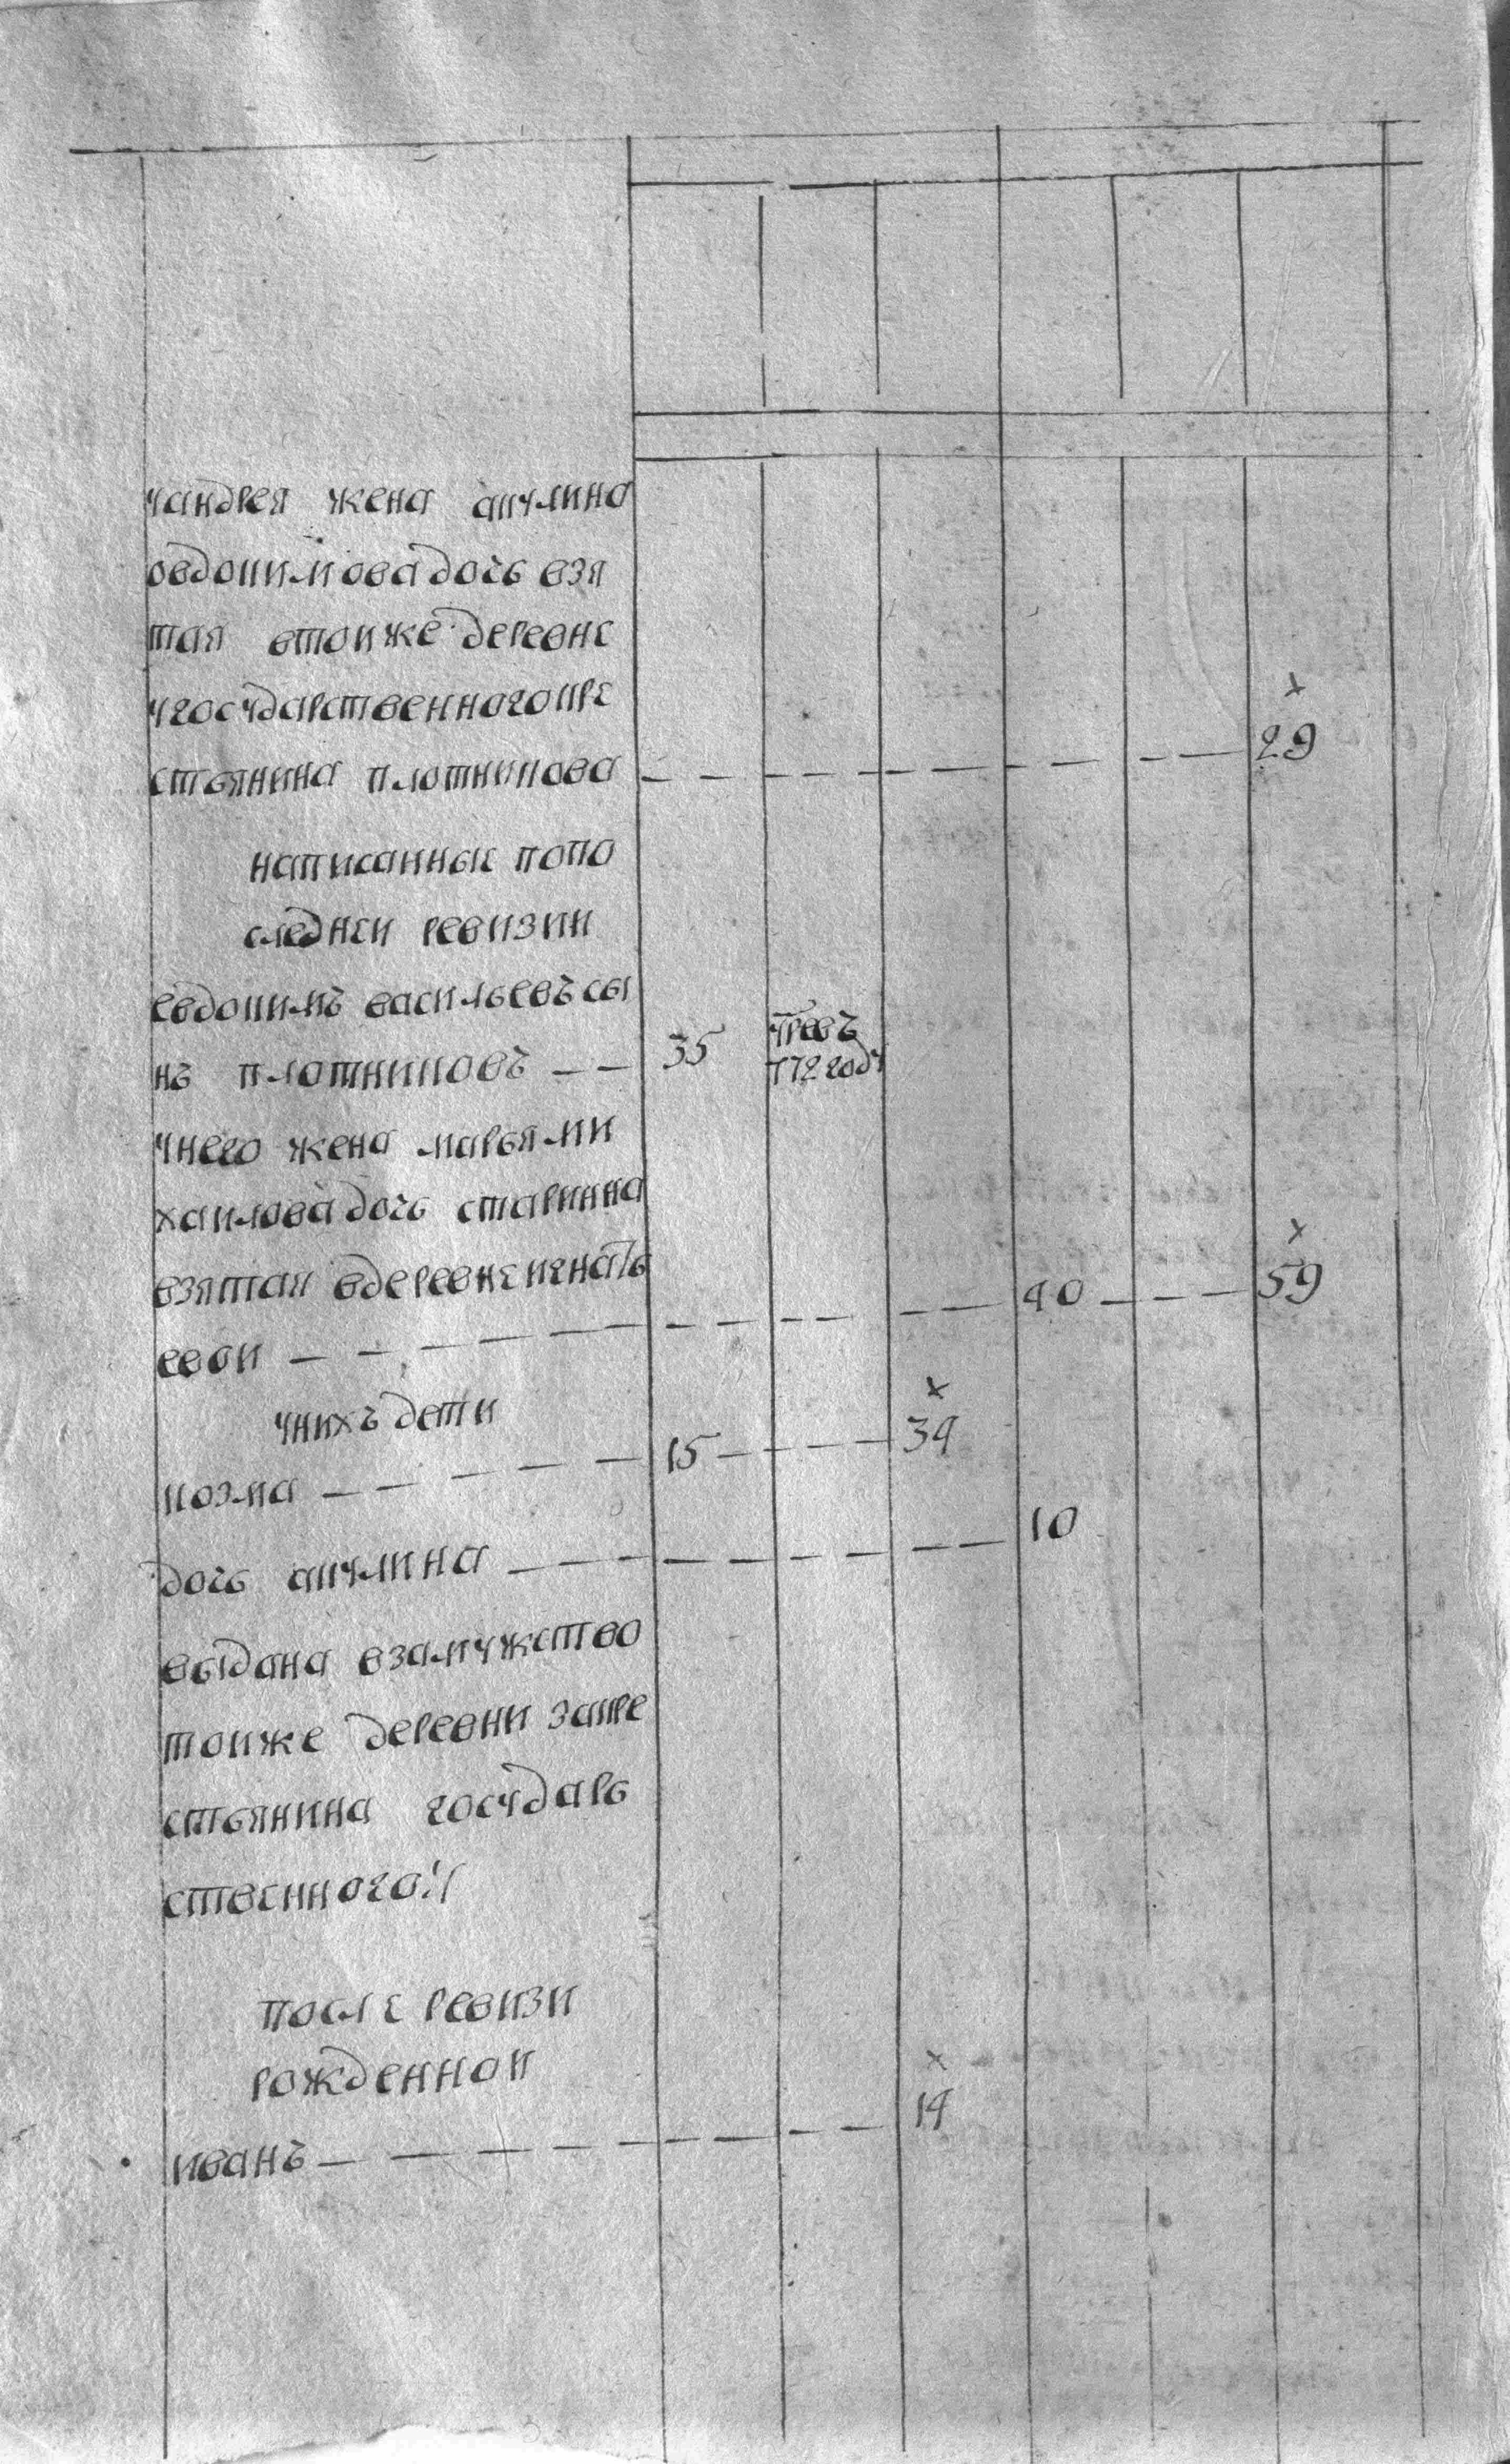 уандрея жена акулина
овдокимова дочь взя
тая втоиже деревне
угосударственного кре
стьянина плотникова — — — — — — — 29
написанные попо
следнеи ревизии
евдокимъ васильевъ сы
нъ плотниковъ — — 35
772 году
унего жена марья ми
хаилова дочь старинна
взятая вдеревне игнать
евои — — — — — — — 40 — — — 59
унихъ дети
козма — — — — — 15 — — — 34
дочь акулина — — — — — — — 10
выдана взамужство
тоиже деревни закре
стьянина государь
ственного
после ревизи
рожденнои
иванъ — — — — — — — — 14